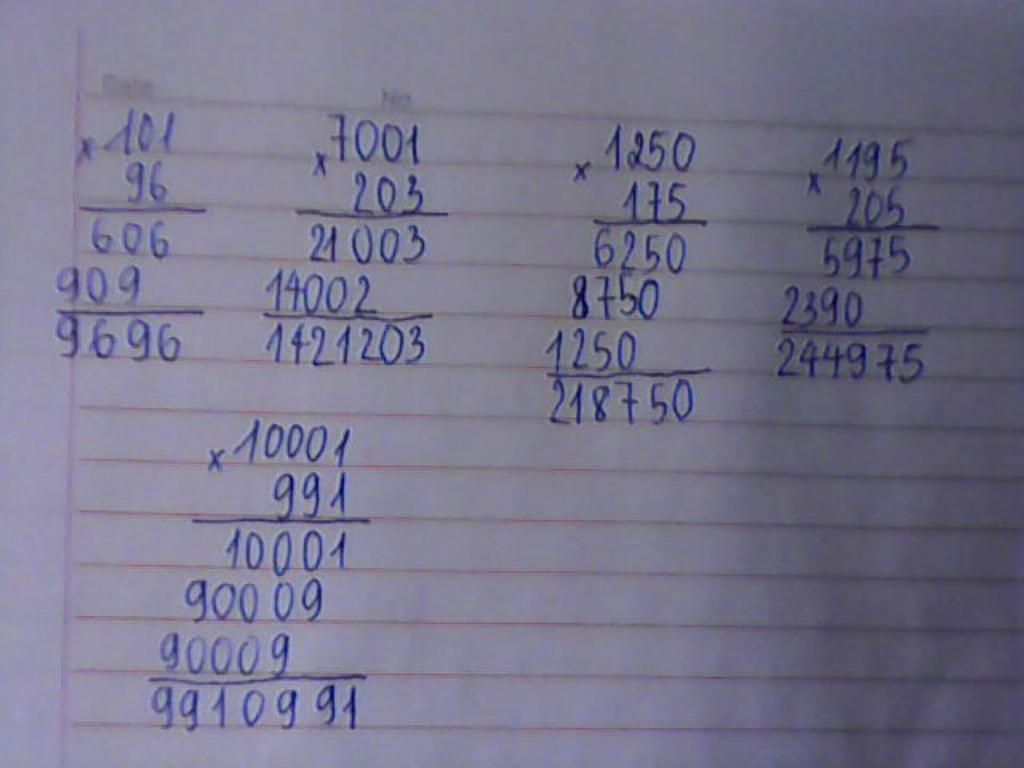 Date
No
× 101
96
606
909
9696
× 7001
203
21003
14002
1421203
× 1250
175
6250
8750
1250
218750
× 1195
205
5975
2390
244975
× 10001
991
10001
90009
90009
9910991